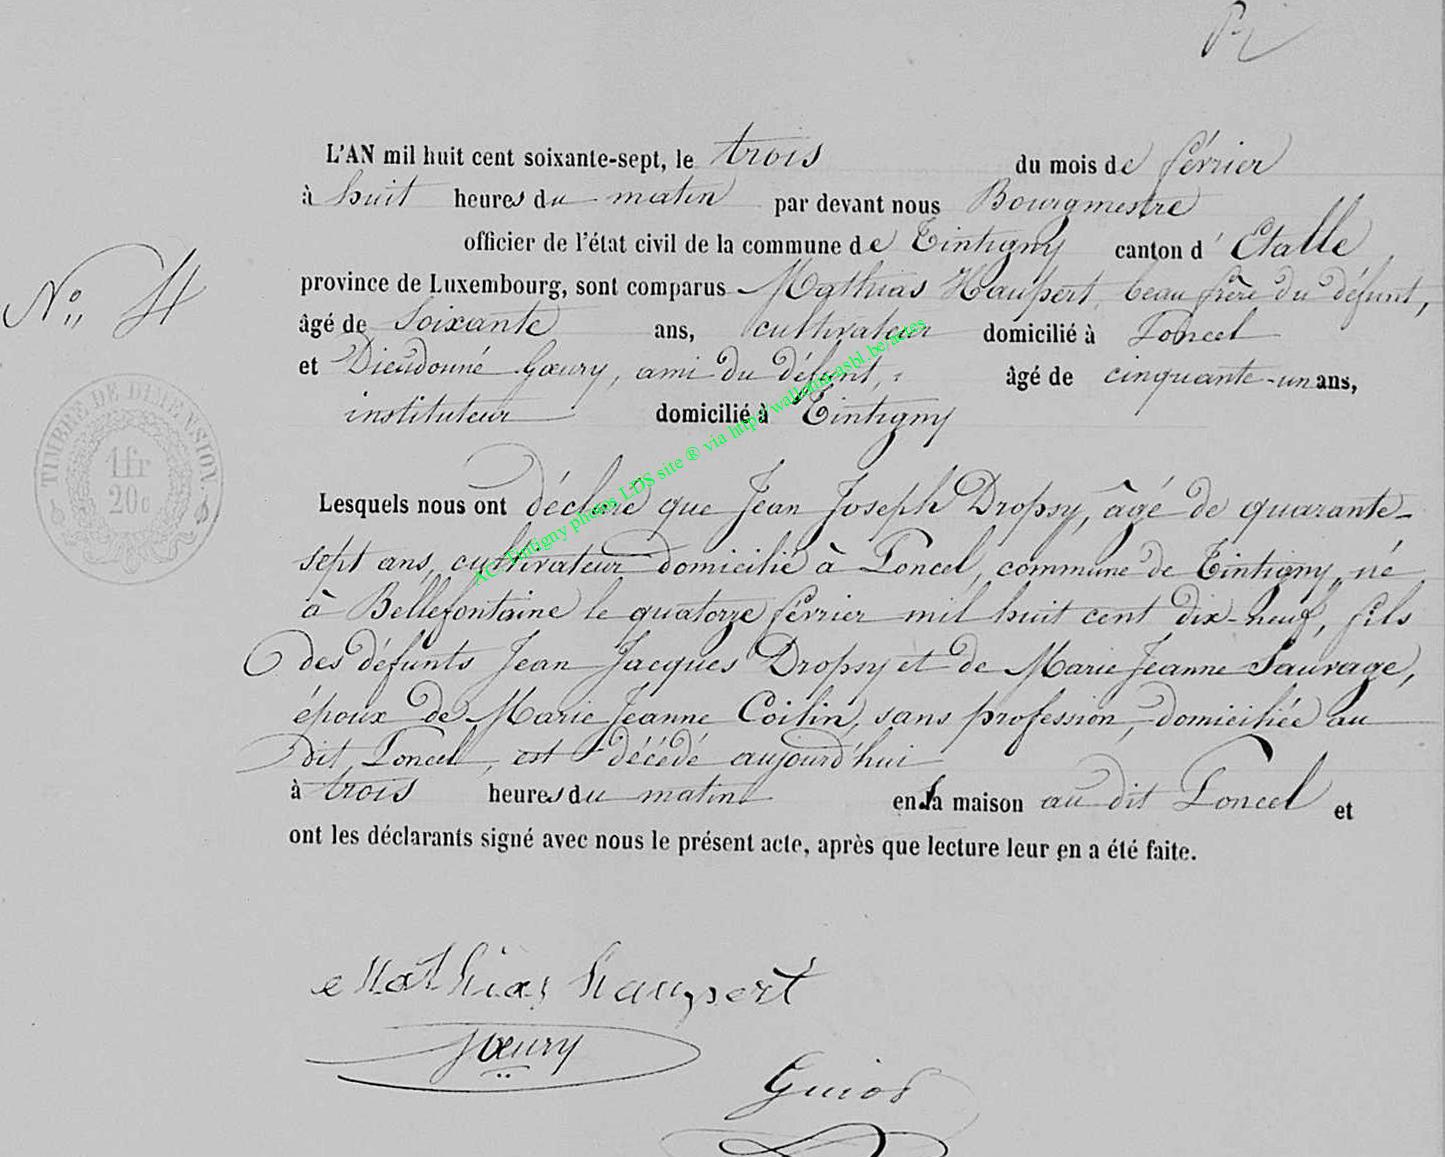 L'AN mil huit cent soixante-sept, le trois du mois de février
à huit heures du matin par devant nous Bourgmestre
officier de l'état civil de la commune de Tintigny canton d'Etalle
province de Luxembourg, sont comparus Mathias Haupert, beau frère du défunt,
N° 4
âgé de soixante ans, cultivateur domicilié à Poncel
et Dieudonné Gœury, ami du défunt, âgé de cinquante-un ans,
instituteur domicilié à Tintigny
TIMBRE DE DIMENSION
1 fr
20c
Lesquels nous ont déclaré que Jean Joseph Dropsy, âgé de quarante-
sept ans, cultivateur domicilié à Poncel, commune de Tintigny, né
à Bellefontaine le quatorze février mil huit cent dix-neuf, fils
des défunts Jean Jacques Dropsy et de Marie Jeanne Sauvage,
époux de Marie Jeanne Coilin, sans profession, domiciliée au
dit Poncel, est décédé aujourd'hui
à trois heures du matin en sa maison au dit Poncel et
ont les déclarants signé avec nous le présent acte, après que lecture leur en a été faite.
AC Tintigny photos LDS site ® via http://wallonia-asbl.be/actes
Mathias haupert
Gœury
Guiot